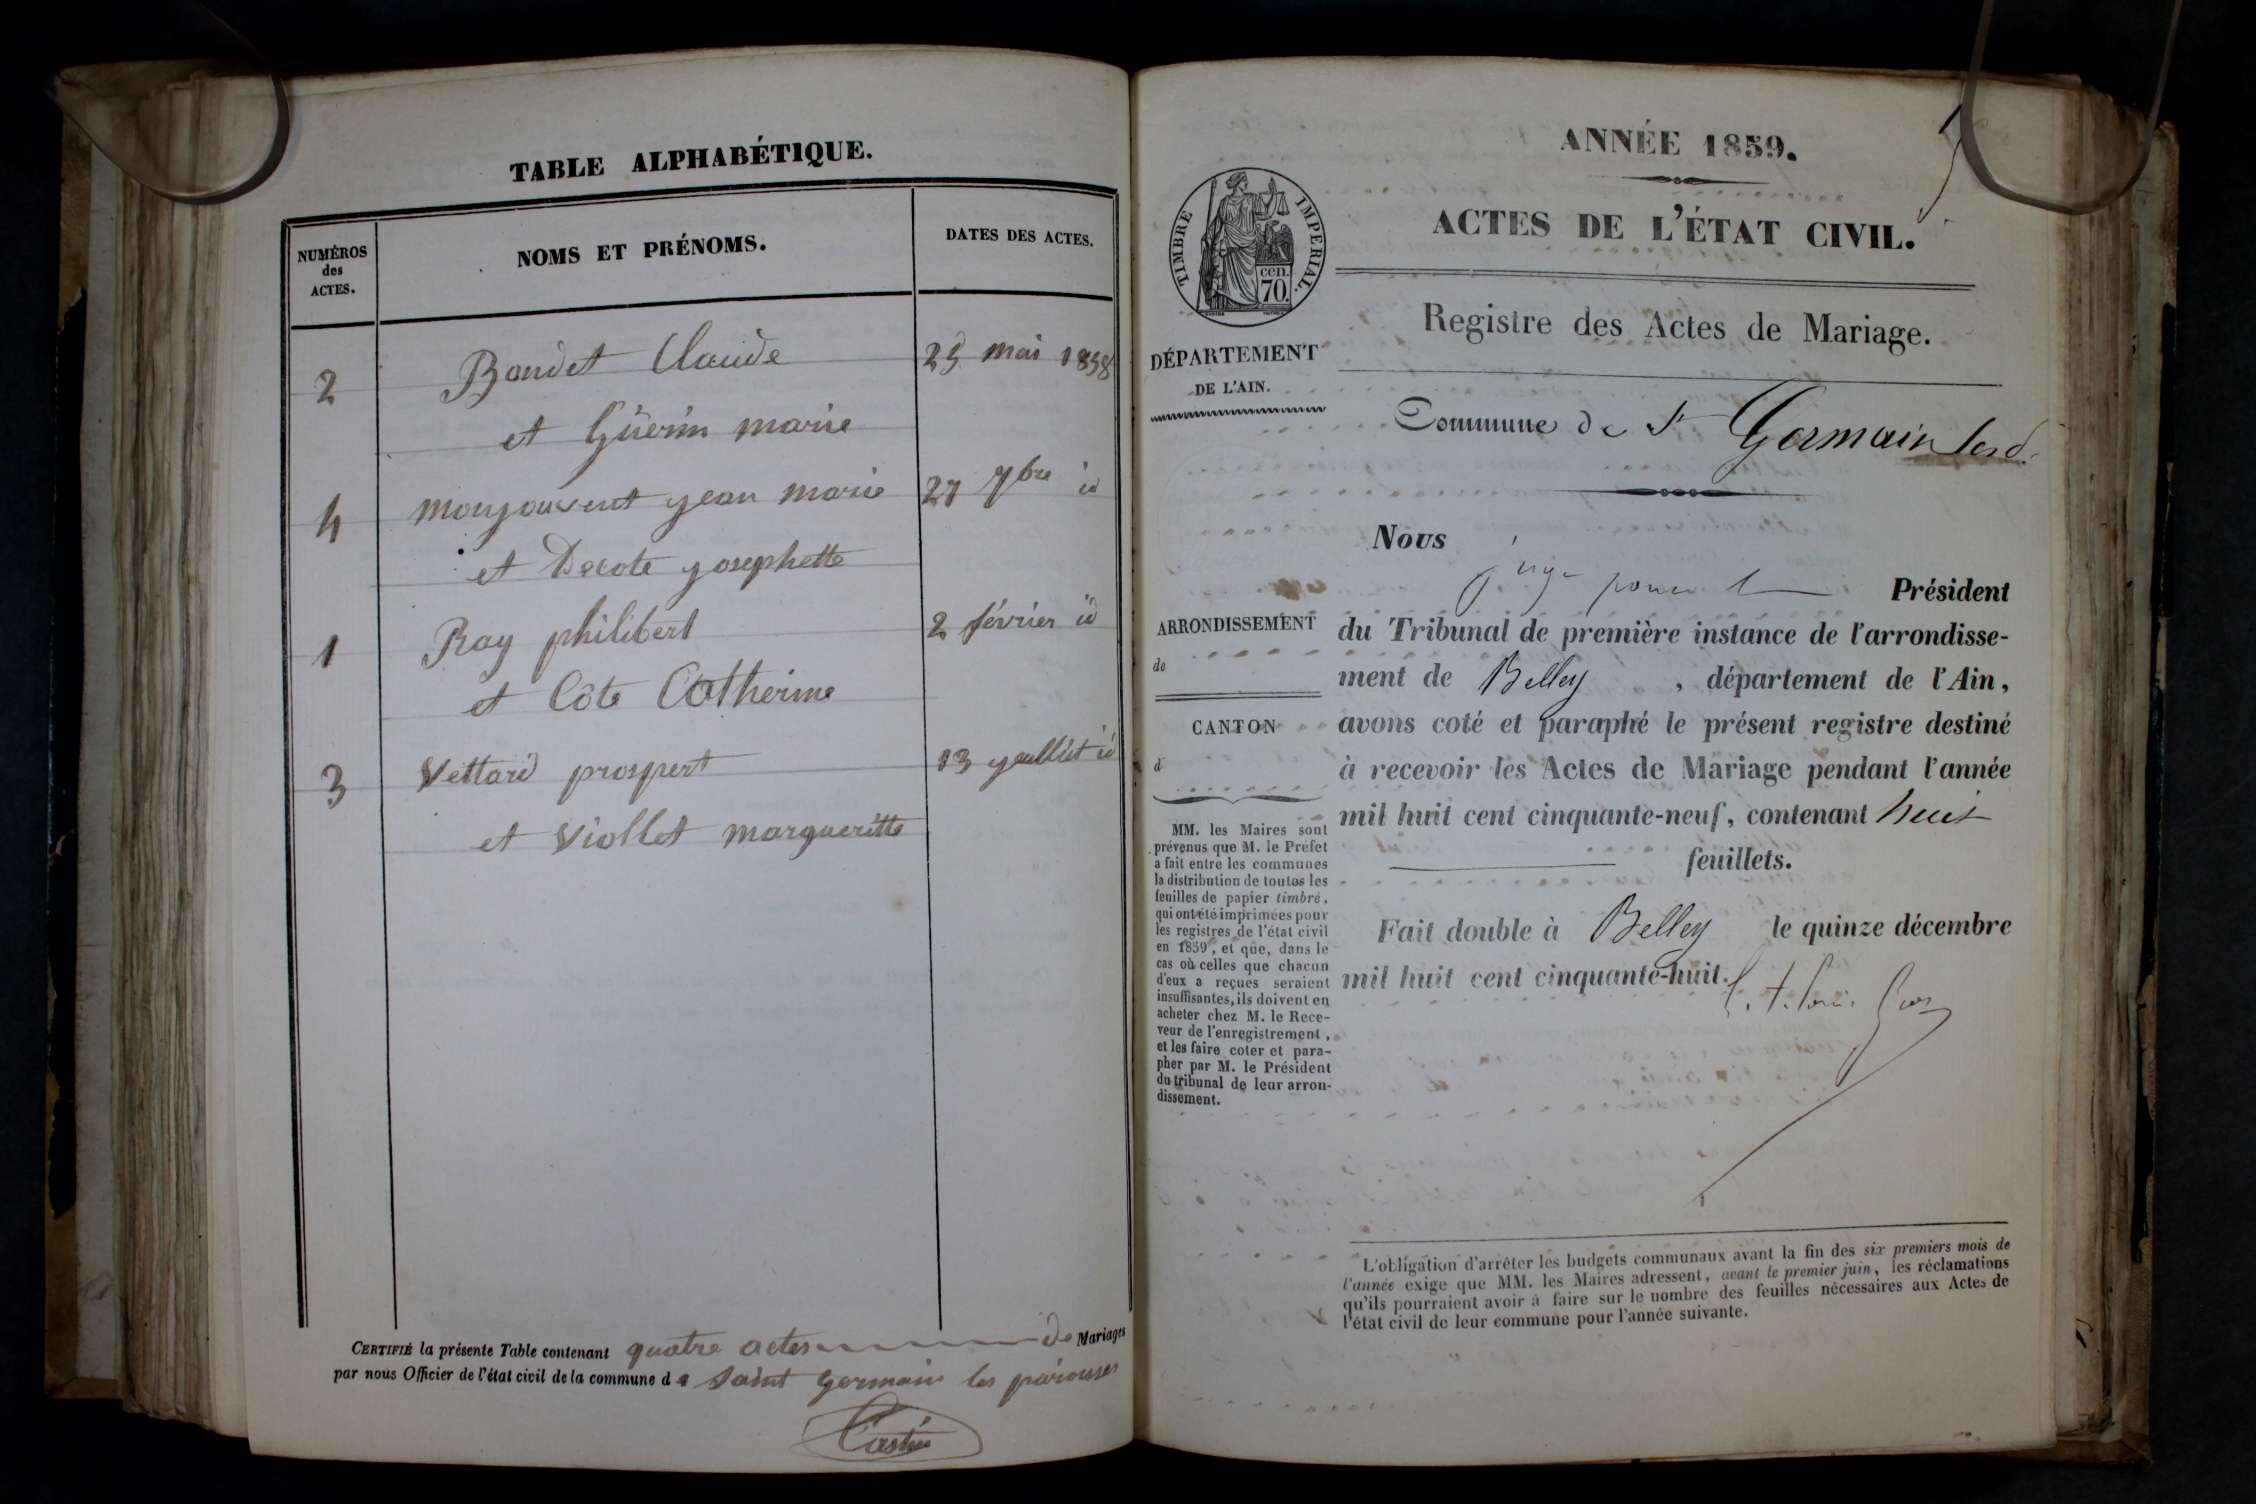 TABLE ALPHABÉTIQUE.
NUMÉROS
des
ACTES.
NOMS ET PRÉNOMS.
DATES DES ACTES.
2 Boudet Claude 25 mai 1858
et Guérin marie
4 monjouvent jean marie 27 7bre id
et Decote josephette
1 Ray philibert 2 février id
et Côte Catherine
3 Vettard prospert 13 juillet id
et Viollet margueritte
CERTIFIÉ la présente Table contenant quatre actes de Mariages
par nous Officier de l'état civil de la commune de Saint germain les paroisses
ANNÉE 1859.
ACTES DE L'ÉTAT CIVIL.
TIMBRE IMPERIAL.
cen.
70.
Registre des Actes de Mariage.
DÉPARTEMENT
DE L'AIN.
Commune de St Germain
ARRONDISSEMENT
de
CANTON
d
MM. les Maires sont
prévenus que M. le Préfet
a fait entre les communes
la distribution de toutes les
feuilles de papier timbré,
qui ont été imprimées pour
les registres de l'état civil
en 1859, et que, dans le
cas où celles que chacun
d'eux a reçues seraient
insuffisantes, ils doivent en
acheter chez M. le Rece-
veur de l'enregistrement,
et les faire coter et para-
pher par M. le Président
du tribunal de leur arron-
dissement.
Nous juge pour le Président
du Tribunal de première instance de l'arrondisse-
ment de Belley, département de l'Ain,
avons coté et paraphé le présent registre destiné
à recevoir les Actes de Mariage pendant l'année
mil huit cent cinquante-neuf, contenant huit
feuillets.
Fait double à Belley le quinze décembre
mil huit cent cinquante-huit.
L'obligation d'arrêter les budgets communaux avant la fin des six premiers mois de
l'année exige que MM. les Maires adressent, avant le premier juin, les réclamations
qu'ils pourraient avoir à faire sur le nombre des feuilles nécessaires aux Actes de
l'état civil de leur commune pour l'année suivante.